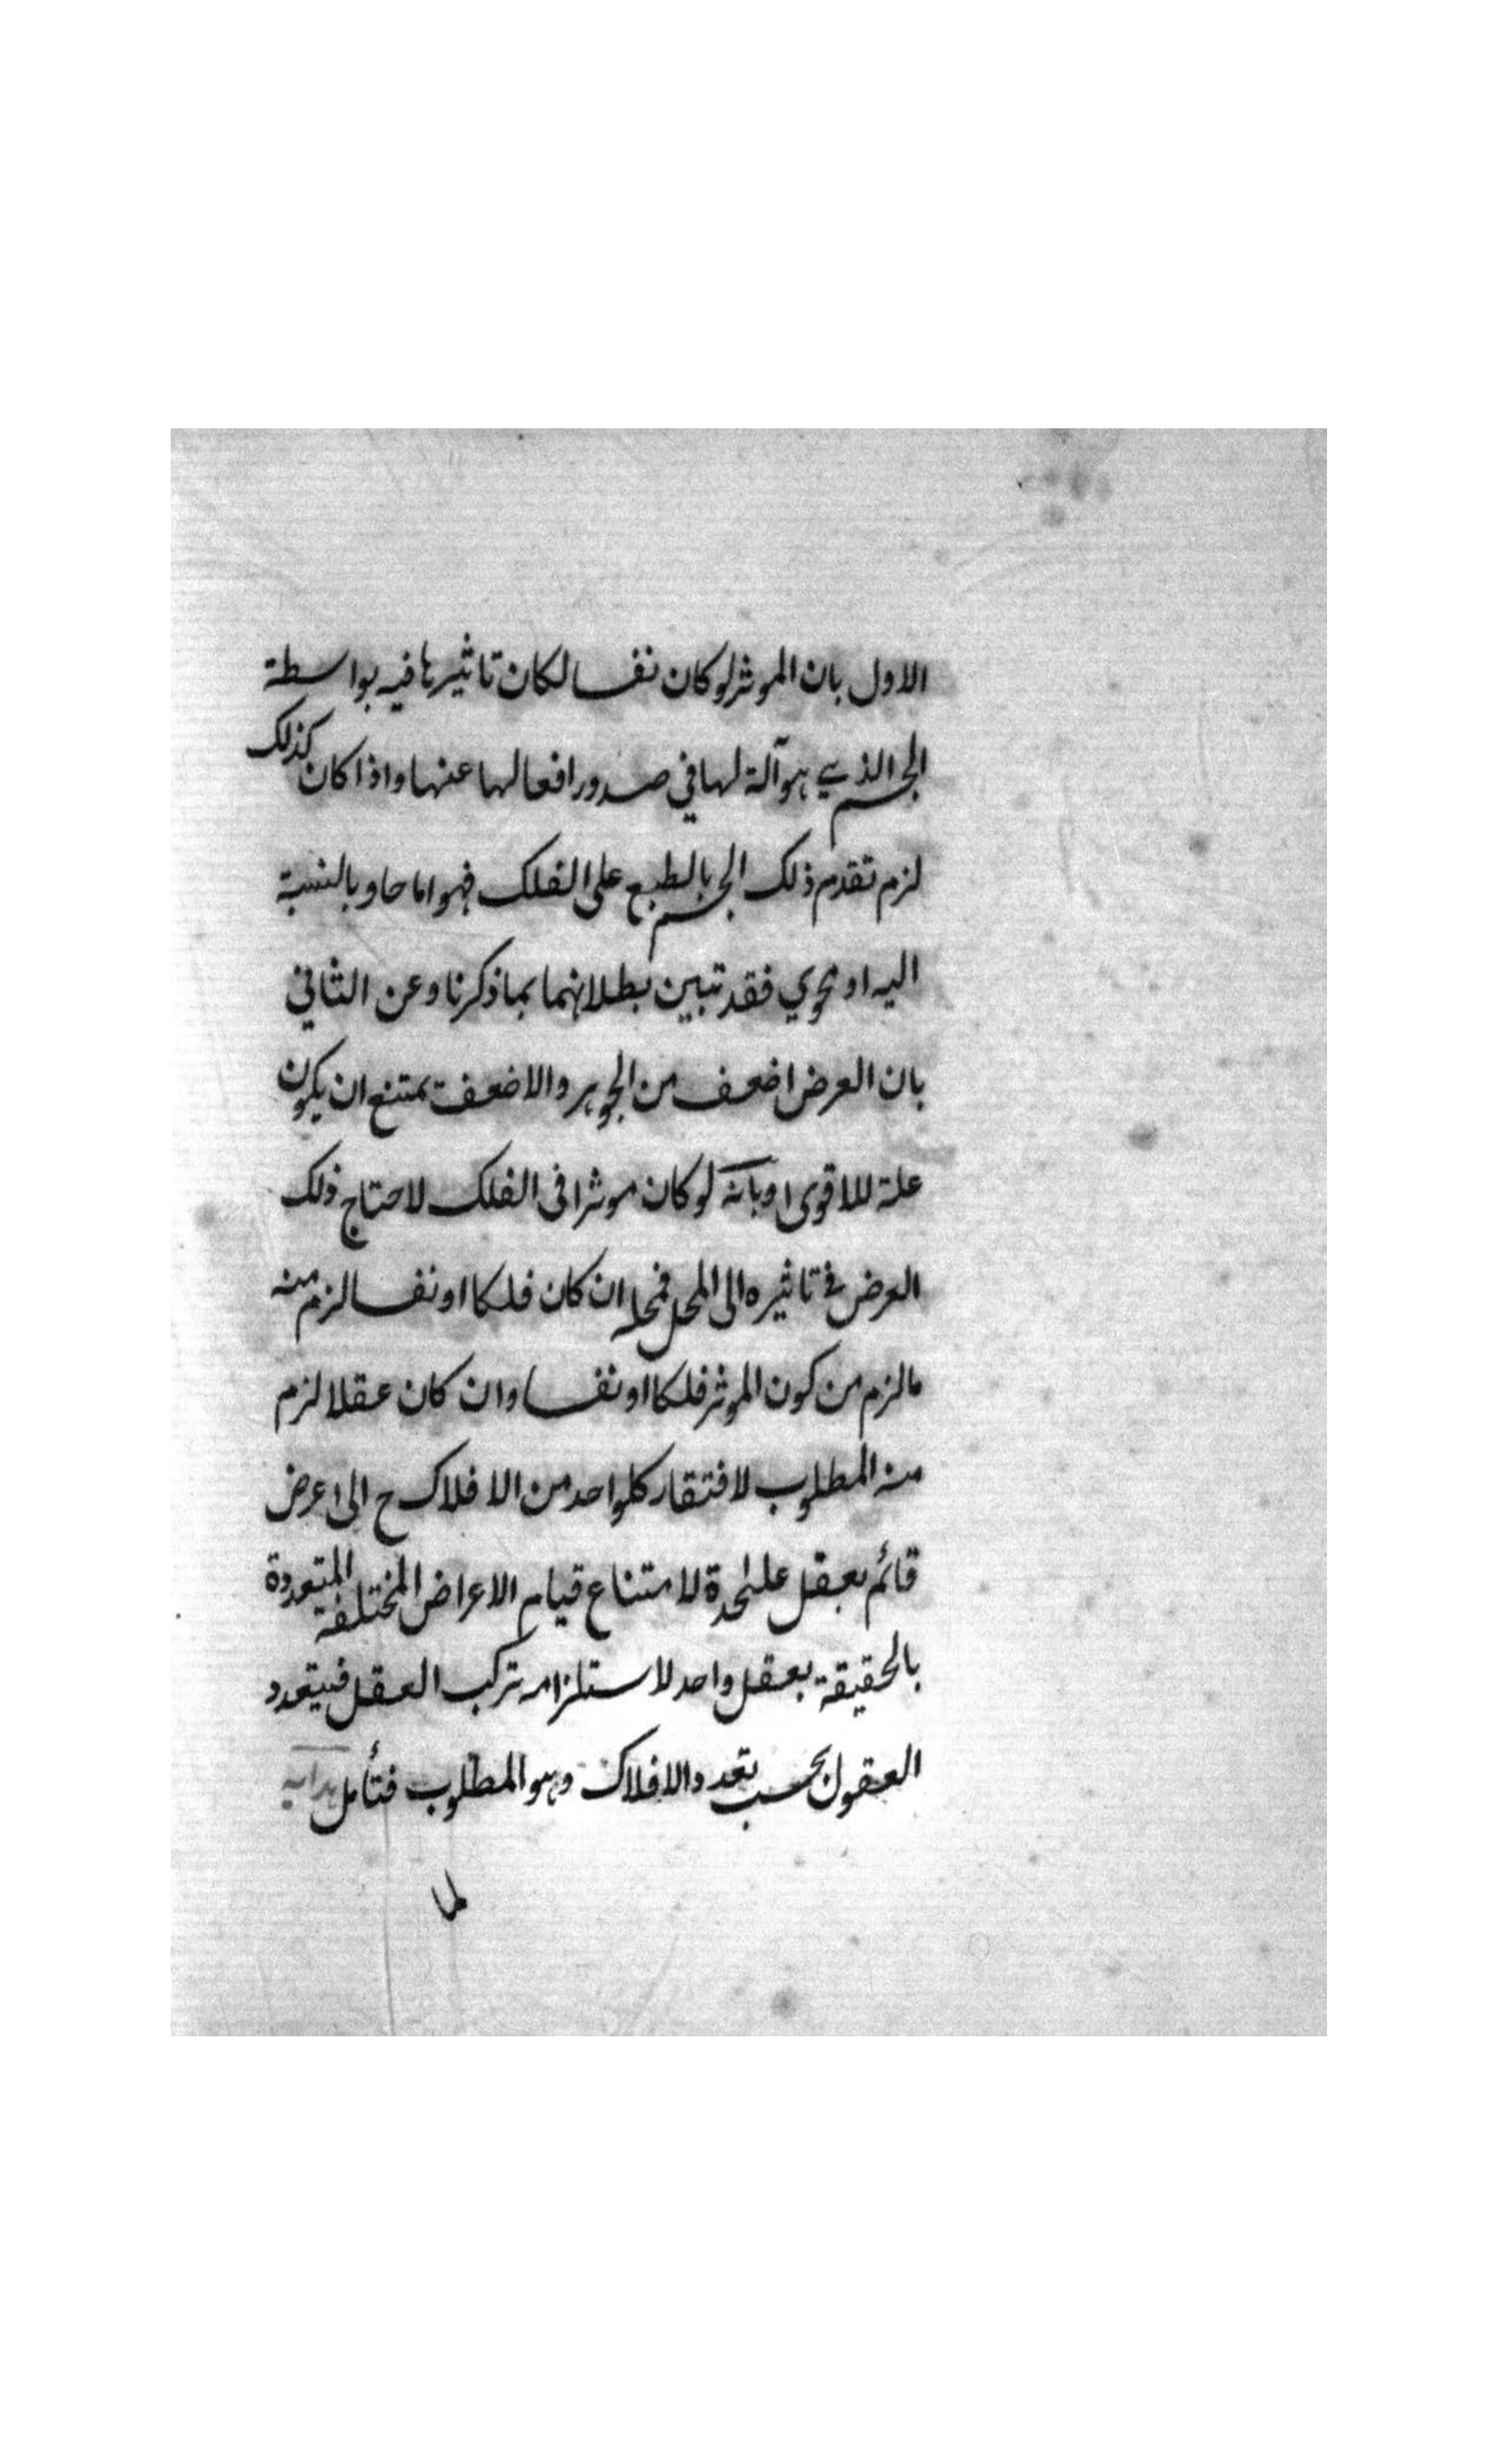 الاول بان الموثر لو كان نفسا لكان تاثيرها فيه بواسطة
الجسم الذي هو آلة لها في صدور افعالها عنها واذا كان كذلك
لزم تقدم ذلك الجسم بالطبع على الفلك فهو اما حاو بالنسبة
اليه او محوي فقد تبين بطلانهما بما ذكرنا وعن الثاني
بان العرض اضعف من الجوهر والاضعف يمتنع ان يكون
علة للاقوى او بانه لو كان موثرا فى الفلك لاحتاج ذلك
العرض في تاثيره الى المحل فمحله ان كان فلكا او نفسا لزم منه
ما لزم من كون الموثر فلكا او نفسا وان كان عقلا لزم
منه المطلوب لافتقار كلواحد من الافلاك ح الى عرض
قائم بعقل علىحدة لامتناع قيام الاعراض المختلفة المتعددة
بالحقيقة بعقل واحد لاستلزامه تركب العقل فيتعدد
العقول بحسب تعدد الافلاك وهو المطلوب فتأمل هداية